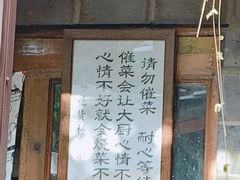 请勿催菜 耐心等
催菜会让大厨心情不
心情不好就会炒菜不